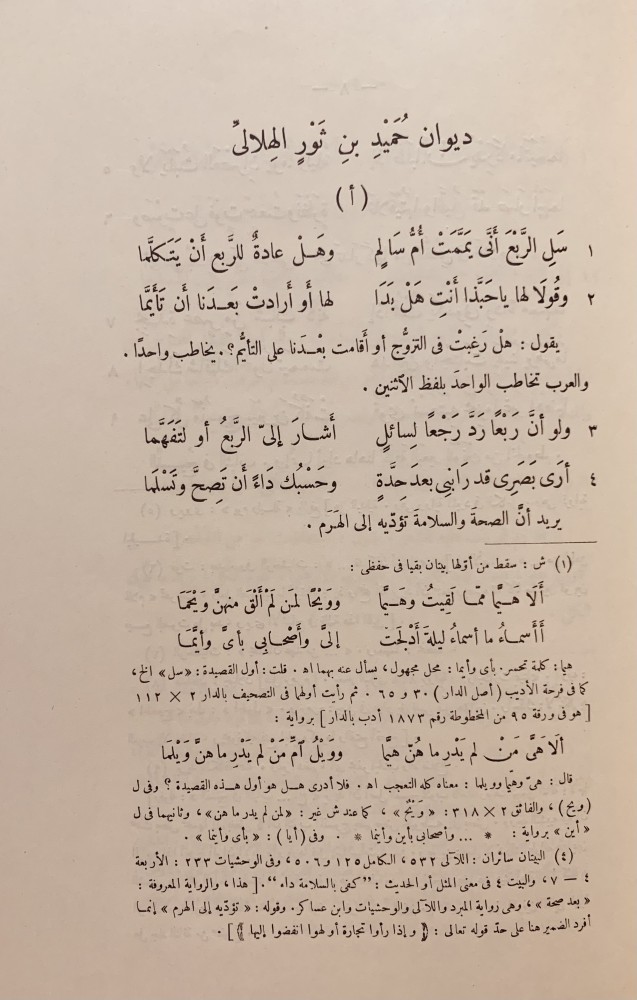 ديوان حُمَيْدِ بنِ ثَوْرٍ الهِلالىِّ
(أ)
١ سَلِ الرَّبْعَ أَنَّى يَمَّمَتْ أُمُّ سَالمِ وهَلْ عادةٌ للرَّبع أَنْ يَتَكلَّما
٢ وقُولَا لها يا حَبَّذا أَنْتِ هَلْ بَدَا لها أَو أَرادتْ بَعْدَنا أَن تَأَيمَّا
يقول : هلْ رَغِبتْ فى التزوُّج أو أَقامت بعْدَنا على التأيمُّ؟. يخاطب واحدًا .
والعرب تخاطب الواحدَ بلفظ الآثنين .
٣ ولو أنَّ رَبْعًا رَدَّ رَجْعًا لِسائلٍ أَشَارَ إلىّ الرَّبعُ أو لتَفَهَّما
٤ أرَى بَصَرِى قد رَابنِى بعدَ حِدَّةٍ وحَسْبُك دَاءً أَن تَصِحَّ وتَسْلَما
يريد أنَّ الصحةَ والسلامةَ تؤدّيه إلى الهَرَم .
(١) ش : سقط من أوّلها بيتان بقيا فى حفظى :
أَلَا هَيَّما ممّا لَقِيتُ وهَيَّما ووَيْحًا لمَن لَمْ أَلْقَ منهنَّ وَيْحَمَا
أَأَسماءُ ما أسماءُ ليلةَ أَدْلجَتْ إلىَّ وأَصْحابِى بأىَّ وأَيمَّا
هيا: كلمة تحسر. بأى وأيما : محل مجهول، يسأل عنه بهما اه . قلت: أول القصيدة: «سل» الخ،
كما فى فرحة الأديب (أصل الدار) ٣٠ و ٦٥ . ثم رأيت أولهما فى التصحيف بالدار ٢ × ١١٢
[هو فى ورقة ٩٥ من المخطوطة رقم ١٨٧٣ أدب بالدار] برواية :
ألَا هَىَّ مَنْ لم يَدْرِ ما هُنّ هيَّما ووَيْلُ آمِّ مَنْ لم يَدْرِ ما هنَّ وَيْلَما
قال : هىّ وهيّما وويلما : معناه كله التعجب اه . فلا أدرى هل هو أول هذه القصيدة ؟ وفى ل
(ويح)، والفائق ٢ × ٣١٨: «وَيْحٌ» ، كما عند ش غير : «لمن لم يدر ما هن»، وثانيهما فى ل
«أين» برواية : * ... وأصحابى بأين وأينما * . وفى (أيا) : «بأى وأينما» .
(٤) البيتان سائران : اللآلى ٥٣٢، الكامل ١٢٥ و ٥٠٦، وفى الوحشيات ٢٣٣ : الأربعة
٤ — ٧، والبيت ٤ فى معنى المثل أو الحديث : "كفى بالسلامة داء". [هذا، والرواية المعروفة :
«بعد صحة»، وهى رواية المبرد واللآلى والوحشيات وابن عساكر. وقوله : «تؤدّيه إلى الهرم» إنما
أفرد الضمير هنا على حدّ قوله تعالى : ﴿ وإذا رأوا تجارة أو لهوا انفضوا إليها ﴾] .